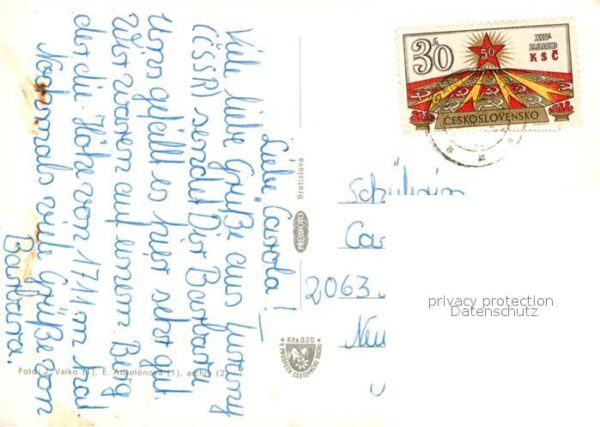 Liebe Carola!
Viele liebe Grüße aus
(ČSSR) sendet Dir Barbara
Uns gefällt es hier sehr gut.
Wir waren auf einem Berg
der die Höhe von 1711 m hat
Nochmals viele Grüße von
Barbara.
Foto: J. Valko E. Apolónová (1), archív (2)
Bratislava
PRESSFOTO
Kčs 0,20
30h
50
XIV.
ZJAZD
KSČ
ČESKOSLOVENSKO
Schülerin
Car
2063
Neu
privacy protection
Datenschutz